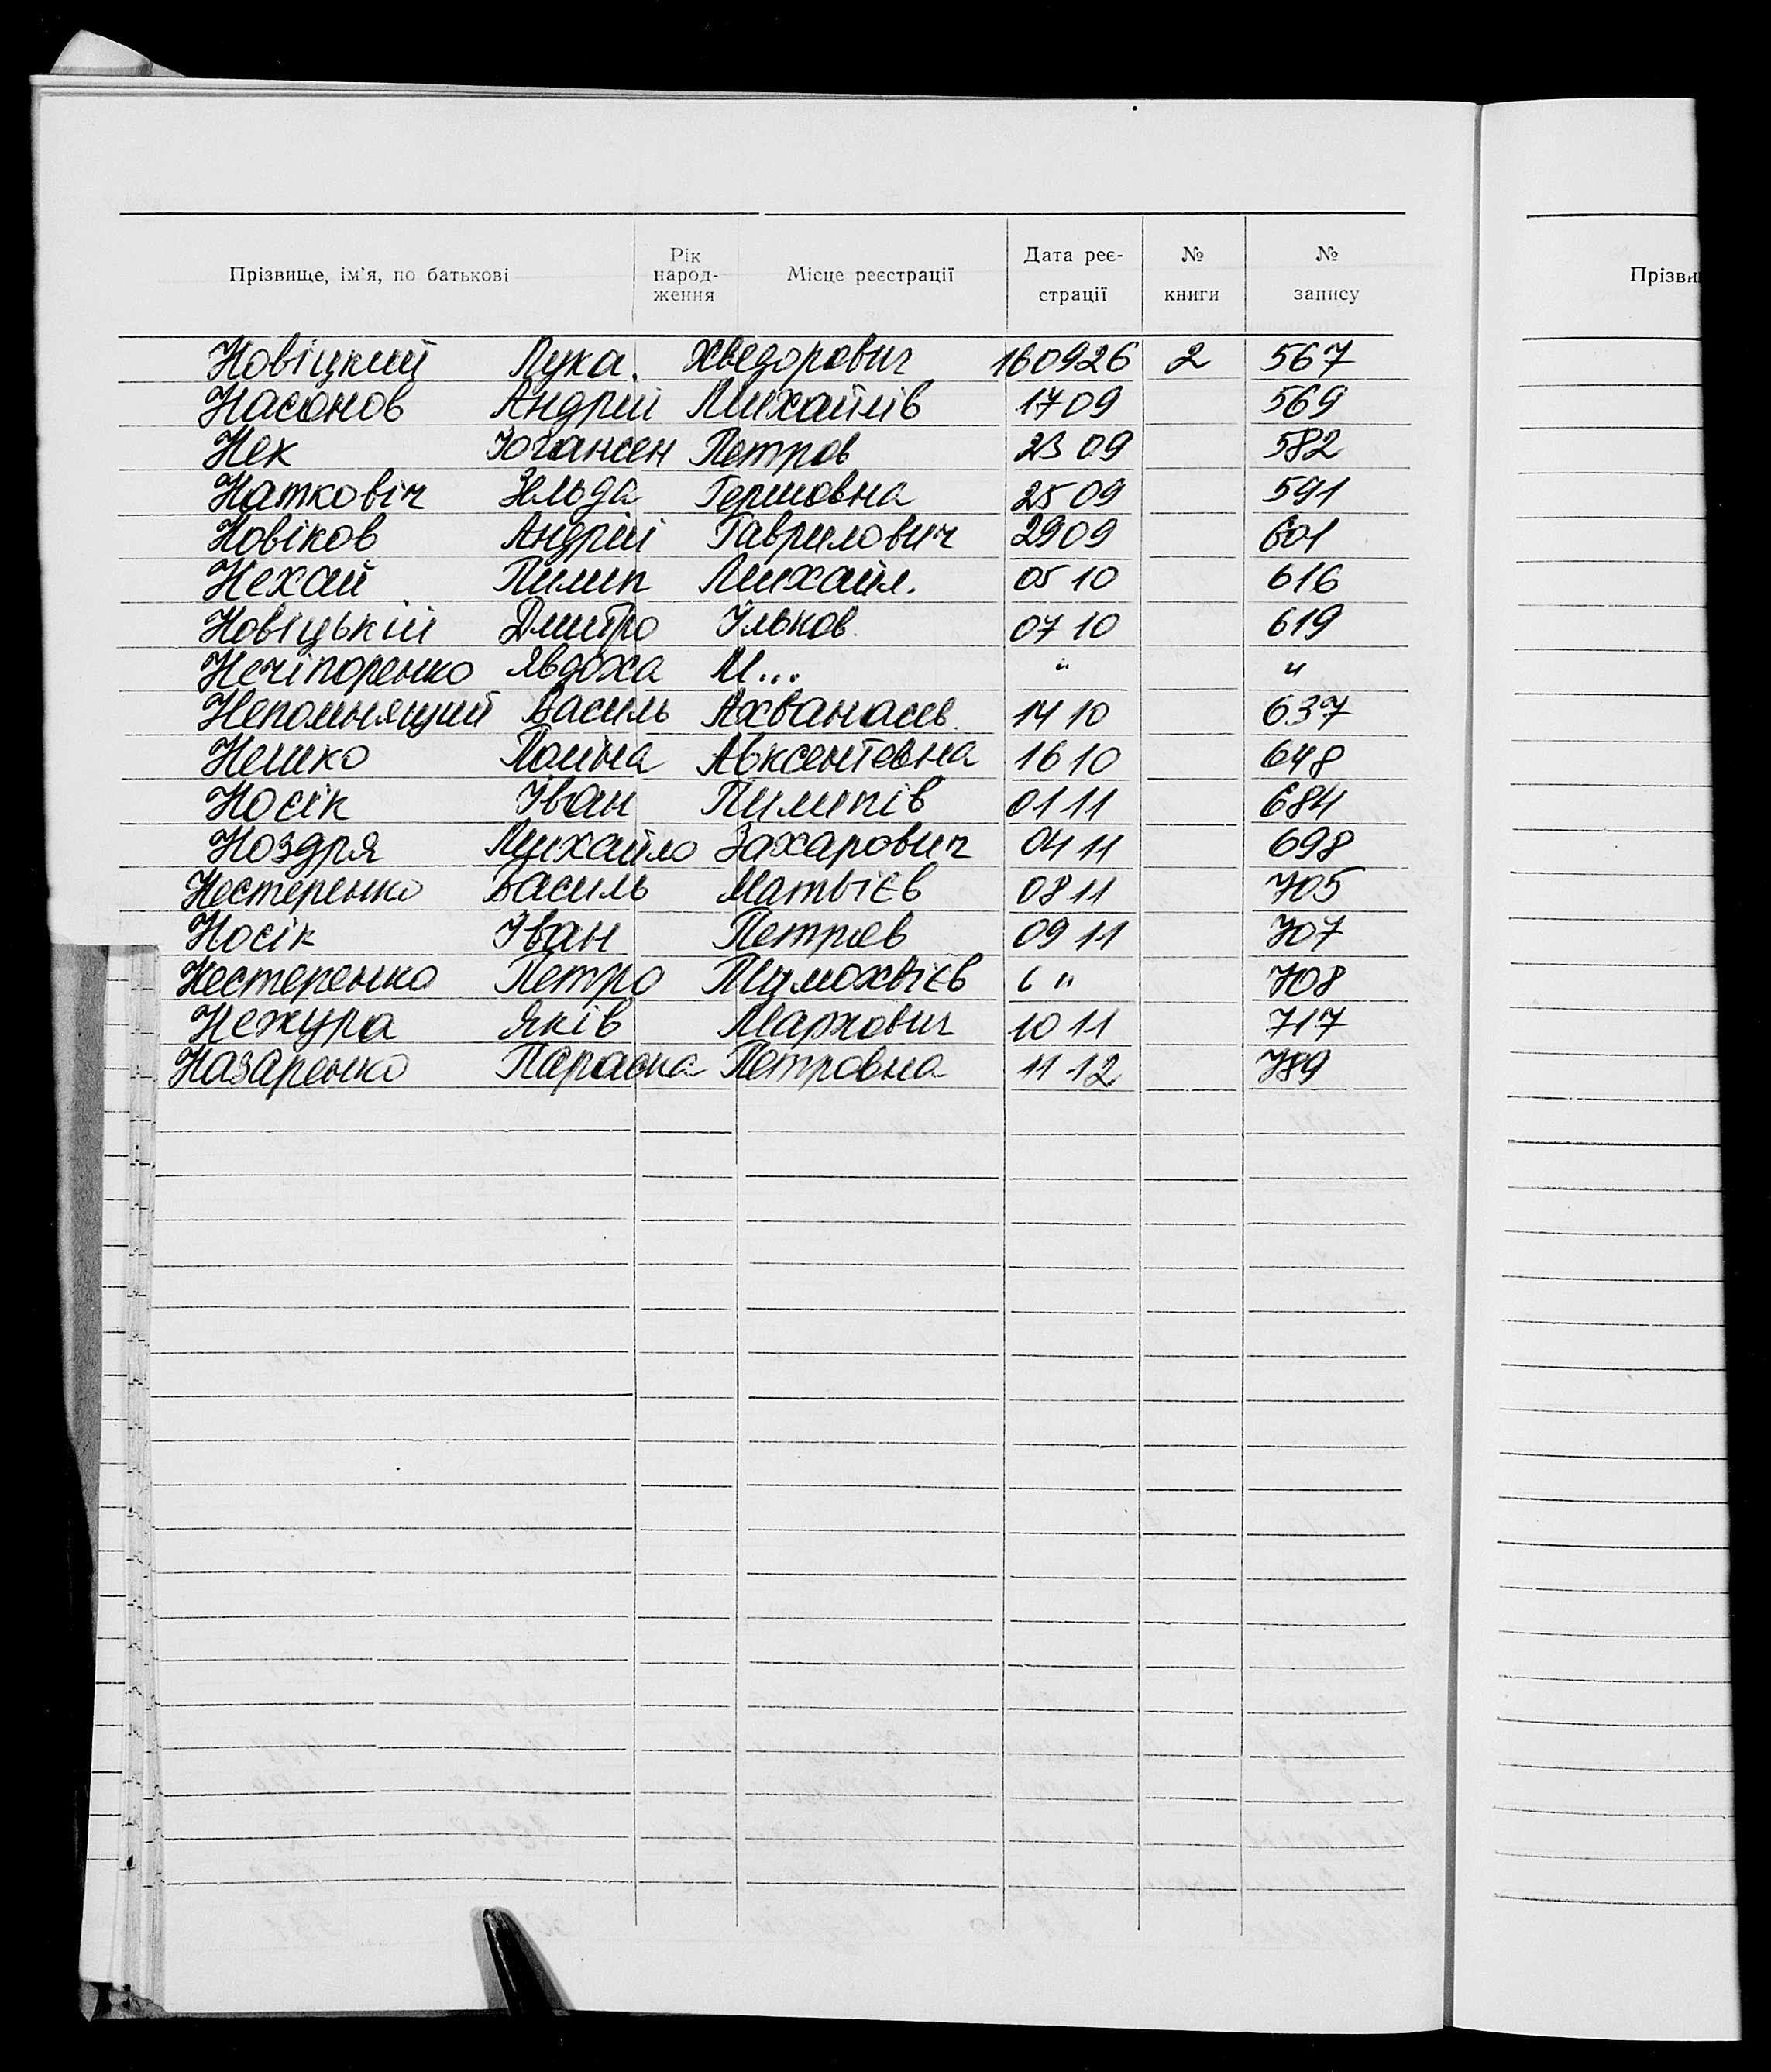 Прізвище, ім’я, по батькові Рік народ- ження Місце реєстрації Дата реє- страції № книги № запису
Прізви
Новіцкий Лука. Хведорович 160926 2 567
Насонов Андрій Михайлів 1709 569
Нек Йогансен Петров 23 09 582
Наткович Зельда Гершовна 25 09 591
Новіков Андрій Гаврилович 2909 601
Нехай Пилип Михайл. 05 10 616
Новіцькій Дмитро Ільков. 07 10 619
Нечіпоренко Явдоха М... " "
Непомнящий Василь Ахванасів. 14 10 637
Нешко Поліна Авксентевна 16 10 648
Носік Іван Пилипів 01 11 684
Ноздря Михайло Захарович 04 11 698
Нестеренко Василь Матвієв 08 11 705
Носік Іван Петров 09 11 707
Нестеренко Петро Тимохвієв " 708
Нежура Яків Маркович 10 11 717
Назаренко Параска Петровна 11 12 789